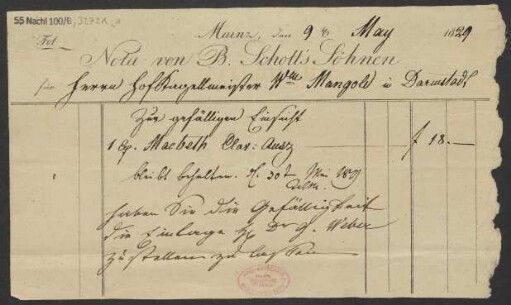 55 Nachl 100/B, 3272A
Mainz, den 9t May 1829
Fol.
Nota von B. Schott's Söhnen
für Herrn Hofkapellmeister Wm Mangold in Darmstadt
Zur gefälligen Einsicht
1 Ex. Macbeth Clav: Ausz f 18.—
bleibt behalten. d. 30t Mai 1829
haben Sie die Gefälligkeit
die Einlage H. Dr G. Weber
zustellen zu lassen